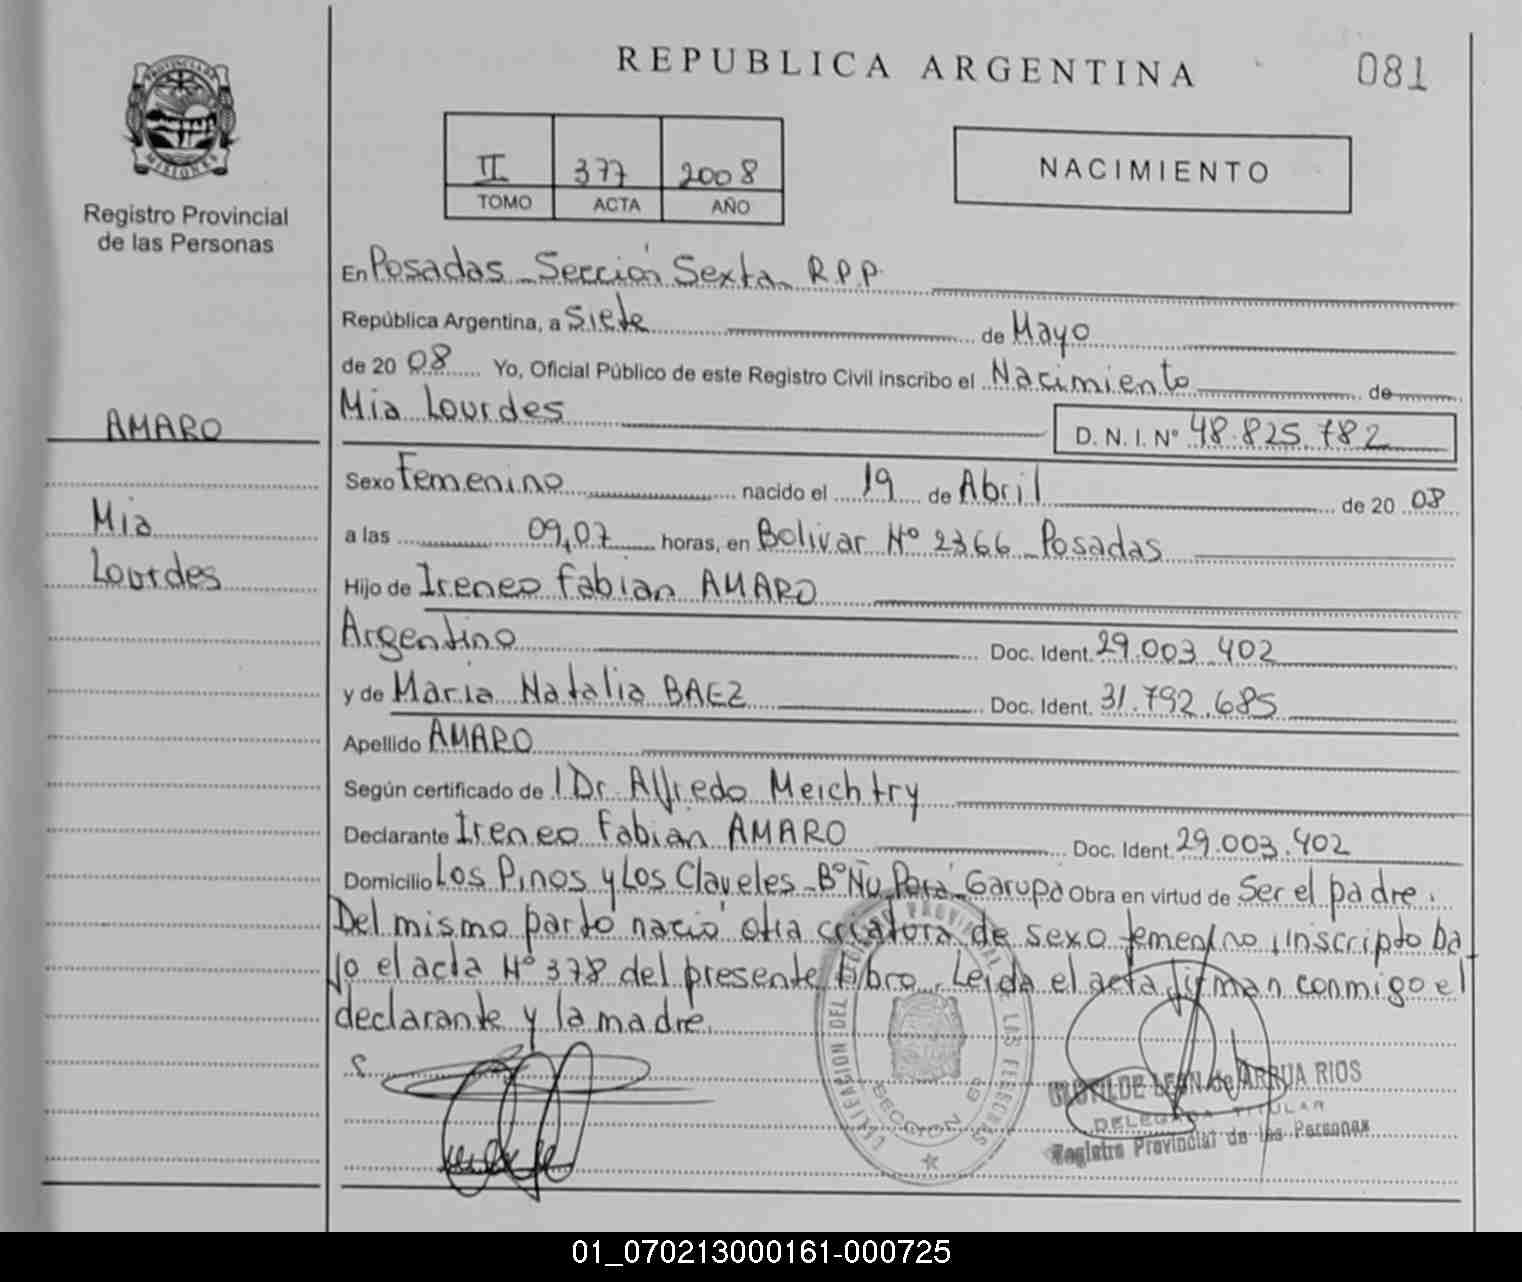 REPUBLICA ARGENTINA
081
PROVINCIA DE
MISIONES
Registro Provincial
de las Personas
II 377 2008
TOMO ACTA AÑO
NACIMIENTO
En Posadas - Sección Sexta R.P.P.
República Argentina, a Siete de Mayo
de 20 08 Yo, Oficial Público de este Registro Civil inscribo el Nacimiento de
Mia Lourdes D. N. I. Nº 48.825.782
AMARO
Mia
Lourdes
Sexo Femenino nacido el 19 de Abril de 20 08
a las 09,07 horas, en Bolivar Nº 2366 - Posadas
Hijo de Ireneo Fabian AMARO
Argentino Doc. Ident. 29.003.402
y de Maria Natalia BAEZ Doc. Ident. 31.792.685
Apellido AMARO
Según certificado de Dr. Alfredo Meichtry
Declarante Ireneo Fabian AMARO Doc. Ident. 29.003.402
Domicilio Los Pinos y Los Claveles - Bº Ñu Porá - Garupá Obra en virtud de Ser el padre.
Del mismo parto nació otra criatura de sexo femenino, inscripto ba
jo el acta Nº 378 del presente libro. Leida el acta firman conmigo el
declarante y la madre.
SECCION 6ª
CLOTILDE LEAN de ARRUA RIOS
DELEGADA TITULAR
Registro Provincial de las Personas
01_070213000161-000725